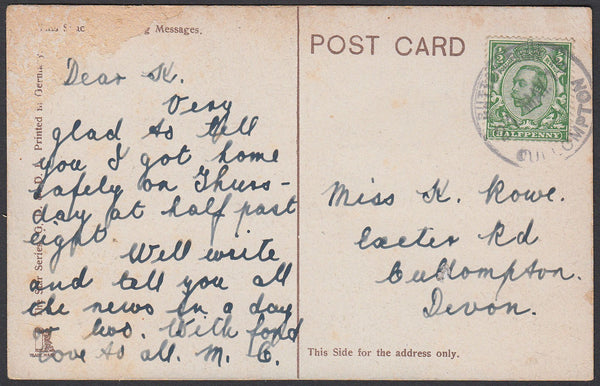 This Messages.
POST CARD
HALFPENNY
CULLOMPTON
Printed in Germany
Dear K.
Very
glad to tell
you I got home
safely on Thurs-
day at half past
eight
Will write
and tell you all
the news in a day
or two. With fond
love to all. M. C.
Miss K. Rowe.
Exeter Rd
Cullompton.
Devon.
This Side for the address only.